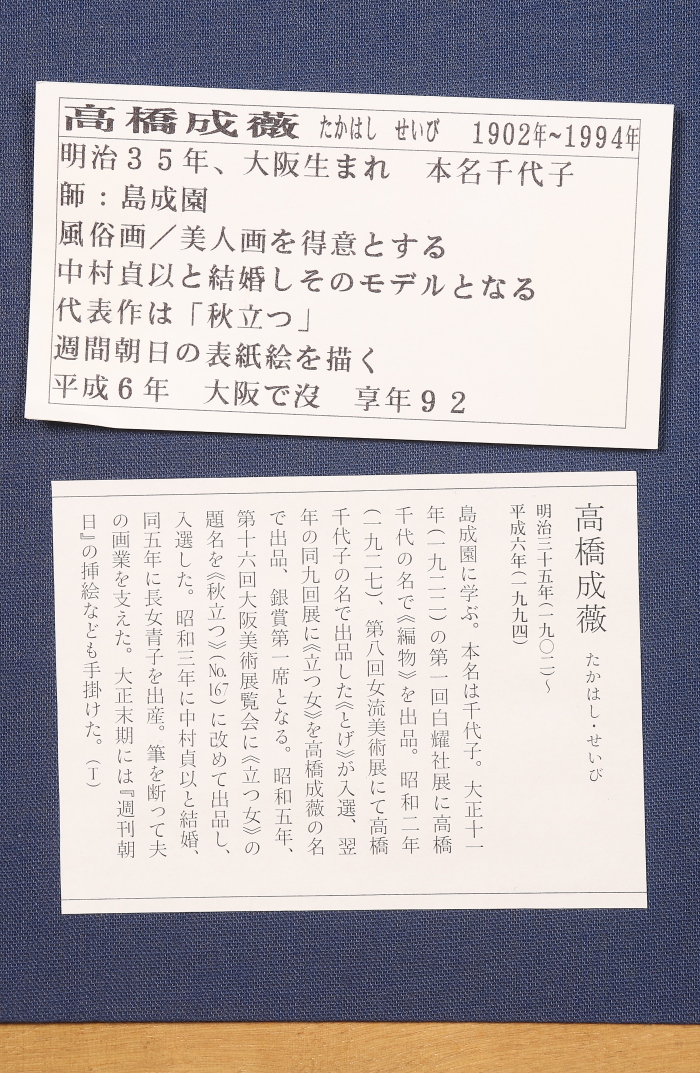 高橋成薇 たかはし せいび 1902年~1994年
明治35年、大阪生まれ 本名千代子
師:島成園
風俗画/美人画を得意とする
中村貞以と結婚しそのモデルとなる
代表作は「秋立つ」
週間朝日の表紙絵を描く
平成6年 大阪で沒 享年92
高橋成薇 たかはし・せいび
明治三十五年(一九〇二)~
平成六年(一九九四)
島成園に学ぶ。本名は千代子。大正十一
年(一九二二)の第一回白耀社展に高橋
千代の名で《編物》を出品。昭和二年
(一九二七)、第八回女流美術展にて高橋
千代子の名で出品した《とげ》が入選、翌
年の同九回展に《立つ女》を高橋成薇の名
で出品、銀賞第一席となる。昭和五年、
第十六回大阪美術展覧会に《立つ女》の
題名を《秋立つ》(No.167)に改めて出品し、
入選した。昭和三年に中村貞以と結婚、
同五年に長女青子を出産。筆を断って夫
の画業を支えた。大正末期には『週刊朝
日』の挿絵なども手掛けた。(T)